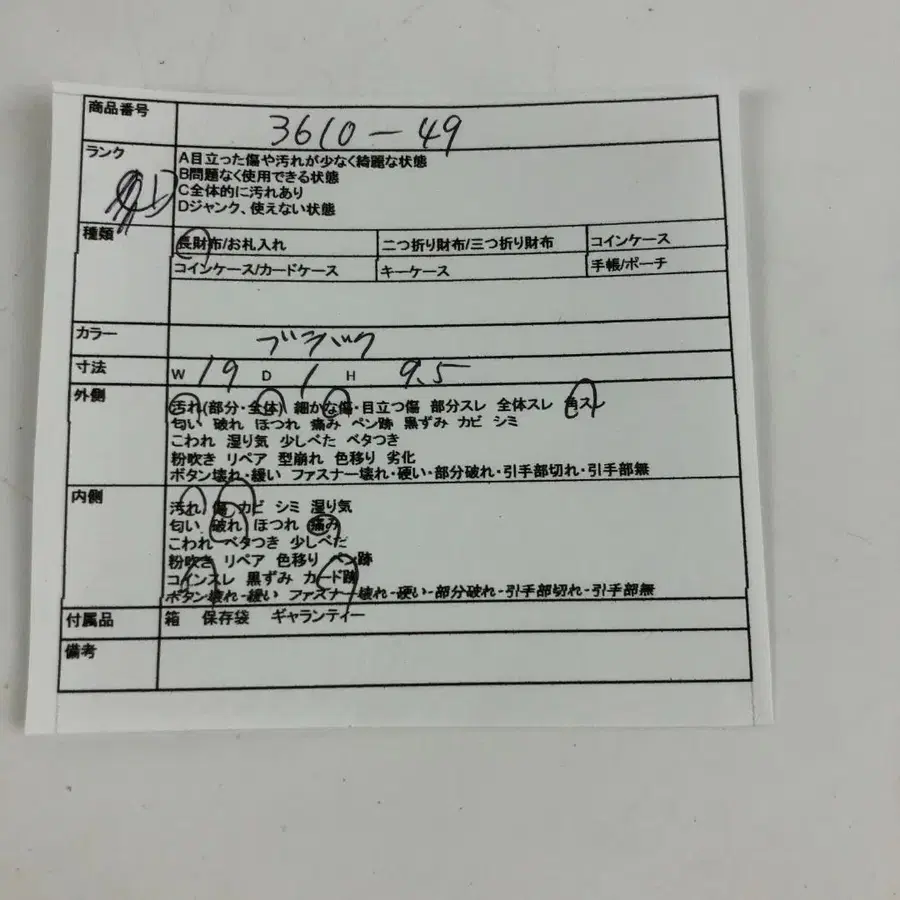 商品番号 3610-49
ランク
A目立った傷や汚れが少なく綺麗な状態
B問題なく使用できる状態
C全体的に汚れあり
Dジャンク、使えない状態
種類 長財布/お札入れ 二つ折り財布/三つ折り財布 コインケース
コインケース/カードケース キーケース 手帳/ポーチ
カラー ブラック
寸法 W 19 D 1 H 9.5
外側
汚れ(部分・全体) 細かな傷・目立つ傷 部分スレ 全体スレ 角スレ
匂い 破れ ほつれ 痛み ペン跡 黒ずみ カビ シミ
こわれ 湿り気 少しべた ベタつき
粉吹き リペア 型崩れ 色移り 劣化
ボタン壊れ・緩い ファスナー壊れ・硬い・部分破れ・引手部切れ・引手部無
内側
汚れ 傷 カビ シミ 湿り気
匂い 破れ ほつれ 痛み
こわれ ベタつき 少しべた
粉吹き リペア 色移り ペン跡
コインスレ 黒ずみ カード跡
ボタン壊れ-緩い ファスナー壊れ-硬い-部分破れ-引手部切れ-引手部無
付属品 箱 保存袋 ギャランティー
備考